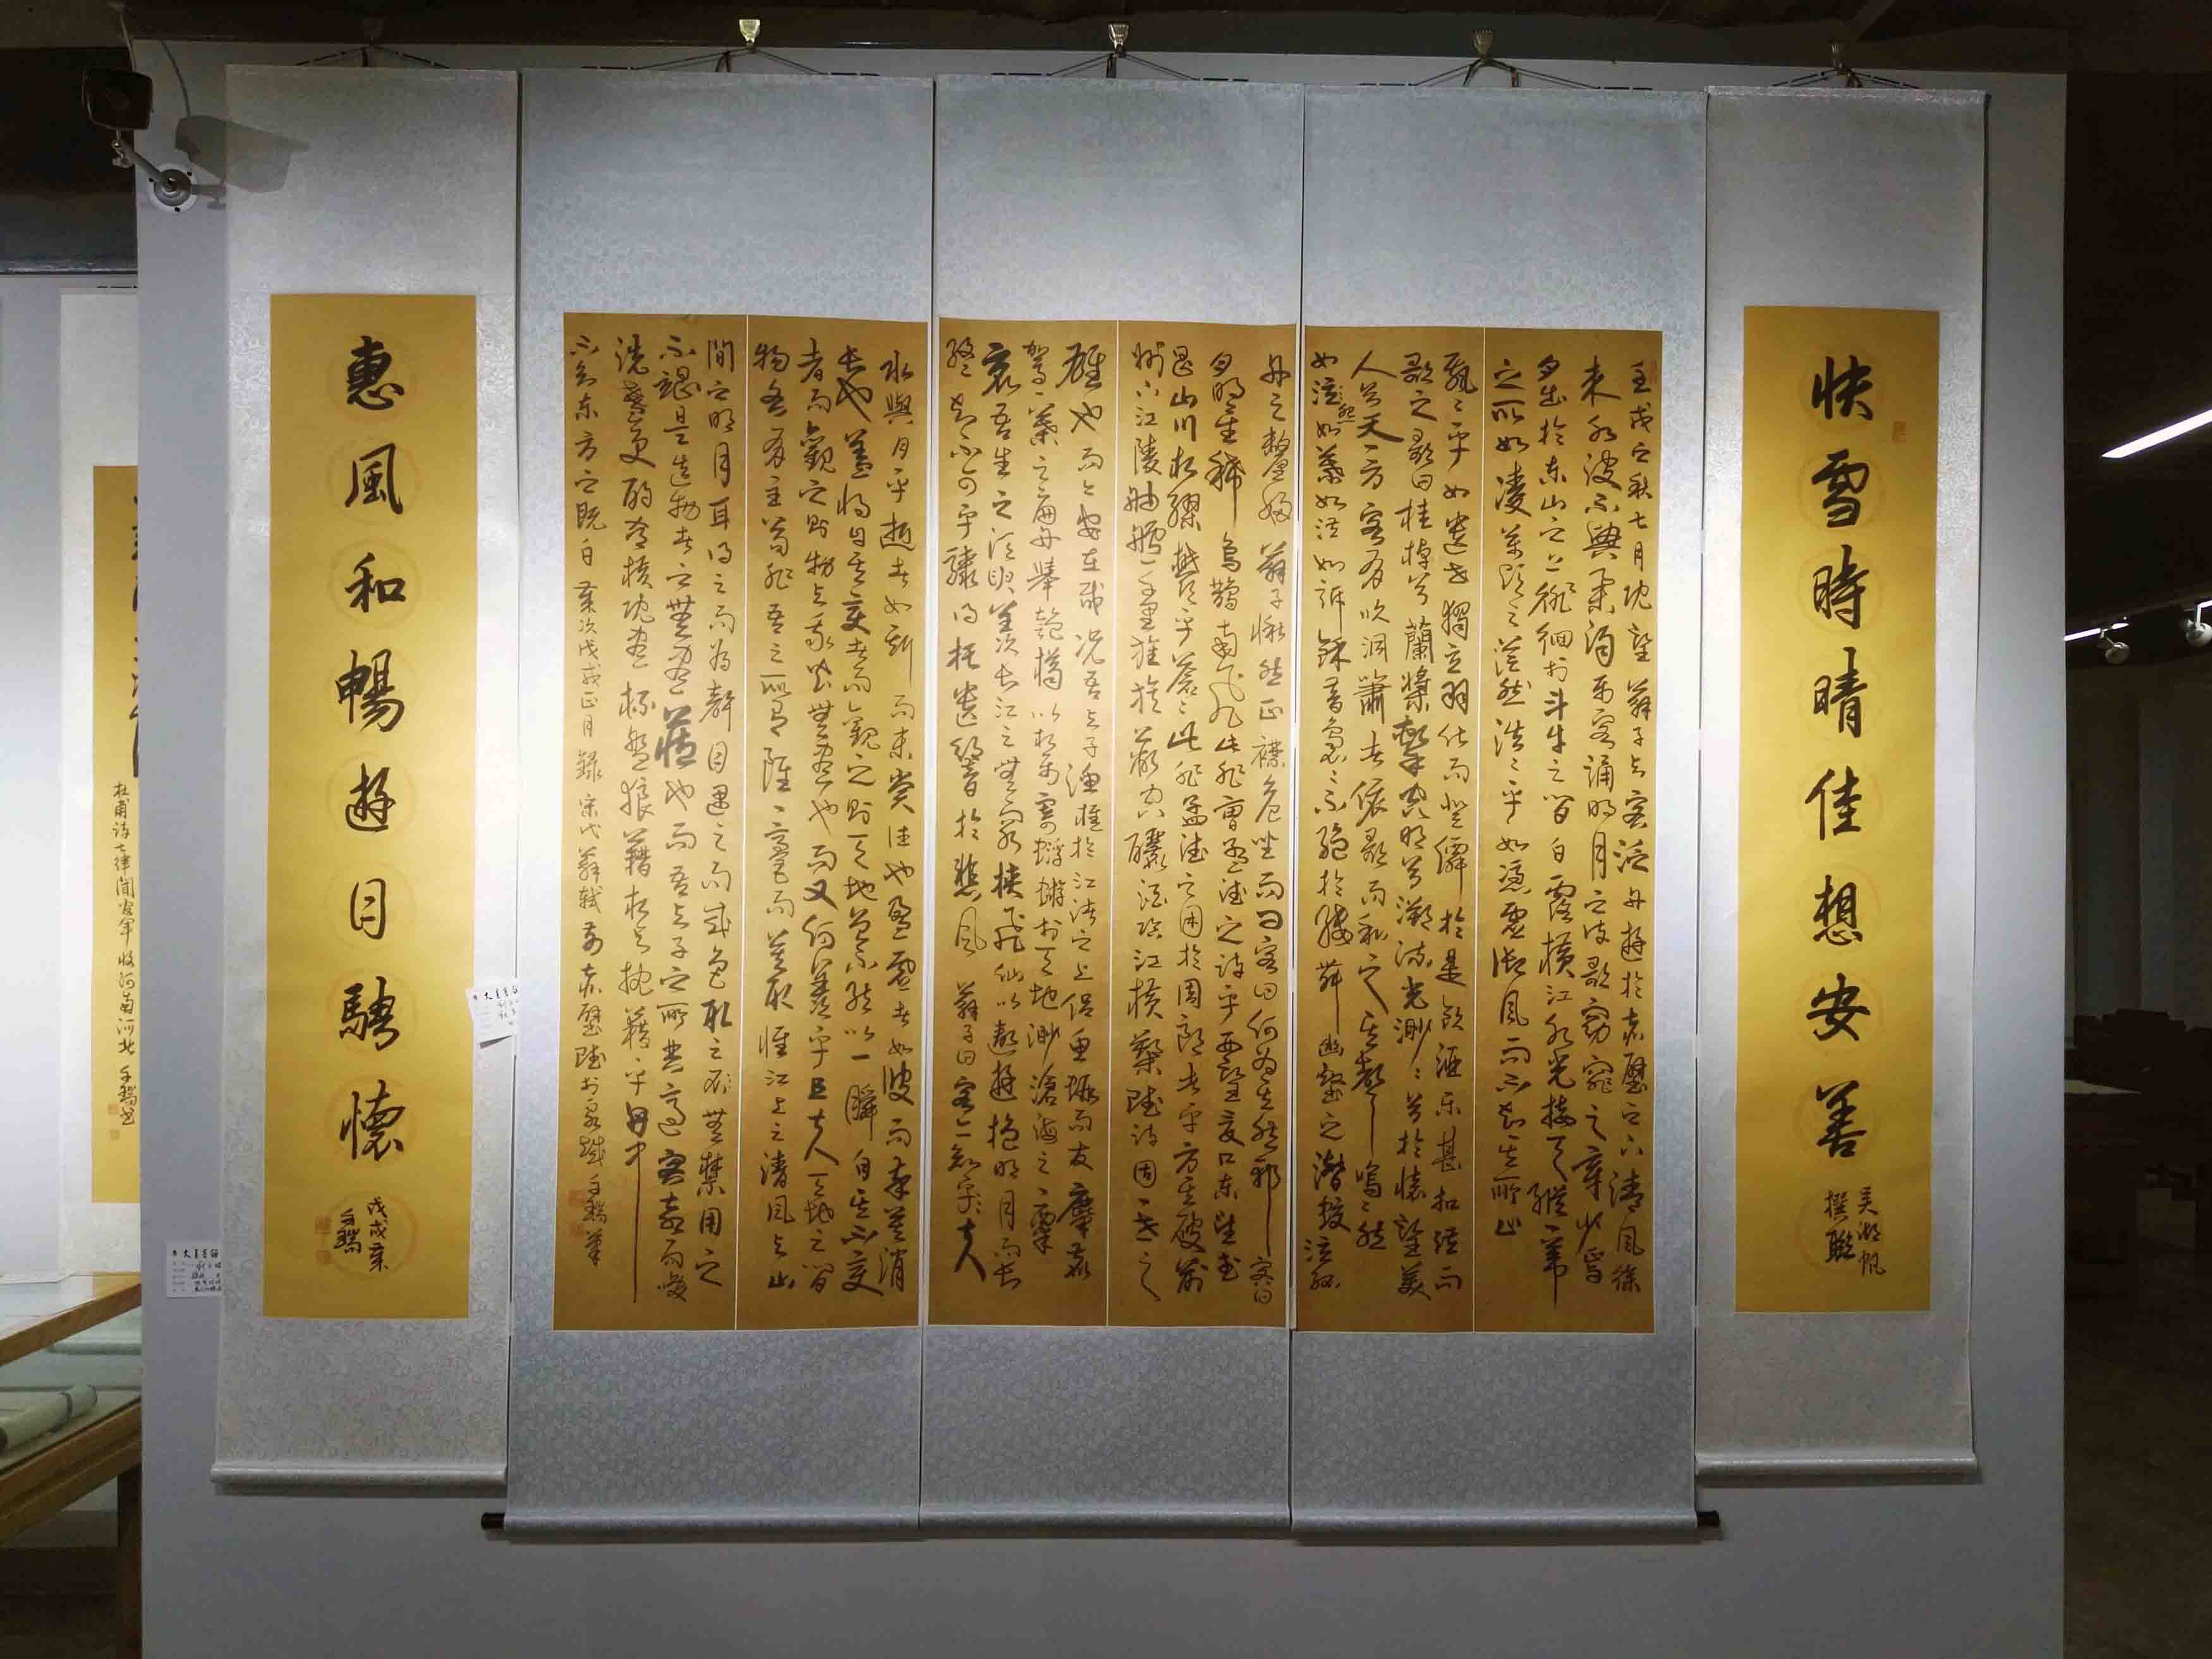 快雪時晴佳想安善
吴湖帆
撰聯
壬戌之秋七月既望蘇子与客泛舟遊於赤壁之下清風徐
来水波不興舉酒属客誦明月之诗歌窈窕之章少焉
月出於东山之上徘徊於斗牛之間白露横江水光接天縱一葦
之所如凌萬頃之茫然浩浩乎如馮虚御風而不知其所止
飄飄乎如遗世獨立羽化而登僊於是飲酒乐甚扣舷而
歌之歌曰桂棹兮蘭槳擊空明兮溯流光渺渺兮於懷望美
人兮天一方客有吹洞簫者依歌而和之其聲嗚嗚然
如怨如慕如泣如訴餘音裊裊不絕於縷舞幽壑之潜蛟泣孤
舟之嫠婦蘇子愀然正襟危坐而问客曰何為其然耶客曰
月明星稀烏鵲南飛此非曹孟德之诗乎西望夏口东望武
昌山川相繆鬱乎蒼蒼此非孟德之困於周郎者乎方其破荆
州下江陵舳艫千里旌旗蔽空釃酒临江横槊賦诗固一世之
雄也而今安在哉况吾与子渔樵於江渚之上侣鱼蝦而友麋鹿
駕一葉之扁舟舉匏樽以相属寄蜉蝣於天地渺滄海之一粟
哀吾生之须臾羡长江之無窮挟飛仙以遨遊抱明月而长
終知不可乎驟得托遗響於悲風蘇子曰客亦知夫
水與月乎逝者如斯而未嘗往也盈虚者如彼而卒莫消
长也盖将自其变者而觀之则天地曾不能以一瞬自其不变
者而觀之则物与我皆無盡也而又何羡乎且夫天地之間
物各有主苟非吾之所有雖一毫而莫取惟江上之清風与山
間之明月耳得之而為聲目遇之而成色取之不禁用之
不竭是造物者之無盡藏也而吾与子之所共適客喜而笑
洗盏更酌肴核既盡杯盤狼藉相与枕藉乎舟中
不知东方之既白 歲次戊戌正月錄宋代蘇軾前赤壁賦於 千瑞筆
惠風和暢遊目騁懷
戊戌夏
千瑞
杜甫诗七律闻官军收河南河北 千瑞书